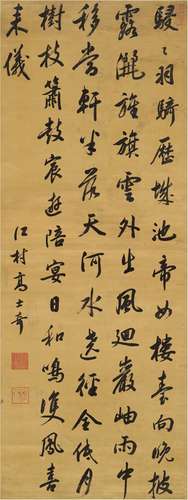 駸〻羽騎歷城池帝女樓臺向晚披
露灑旌旗雲外出風迴巖岫雨中
移當軒半落天河水遶徑全低月
樹枝簫鼓宸遊陪宴日和鳴雙鳳喜
來儀
江村高士奇